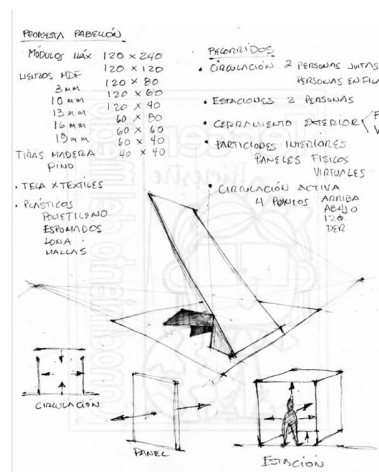 PROPUESTA PABELLÓN
MÓDULOS MÁX 120 x 240
120 x 120
LIENZOS MDF 120 x 80
3 mm 120 x 60
10 mm 120 x 40
13 mm 60 x 80
16 mm 60 x 60
19 mm 60 x 40
TIRAS MADERA 40 x 40
PINO
• TELA X TEXTILES
• PLÁSTICOS
POLIETILENO
ESPUMADOS
LONA
MALLAS
RECORRIDOS
• CIRCULACIÓN 2 PERSONAS JUNTAS
PERSONAS EN FILA
• ESTACIONES 2 PERSONAS
• CERRAMIENTO EXTERIOR F
V
• PARTICIONES INTERIORES
PANELES FISICOS
VIRTUALES
• CIRCULACIÓN ACTIVA
4 PUNTOS ARRIBA
ABAJO
IZQ
DER
CIRCULACIÓN
PANEL
ESTACIÓN